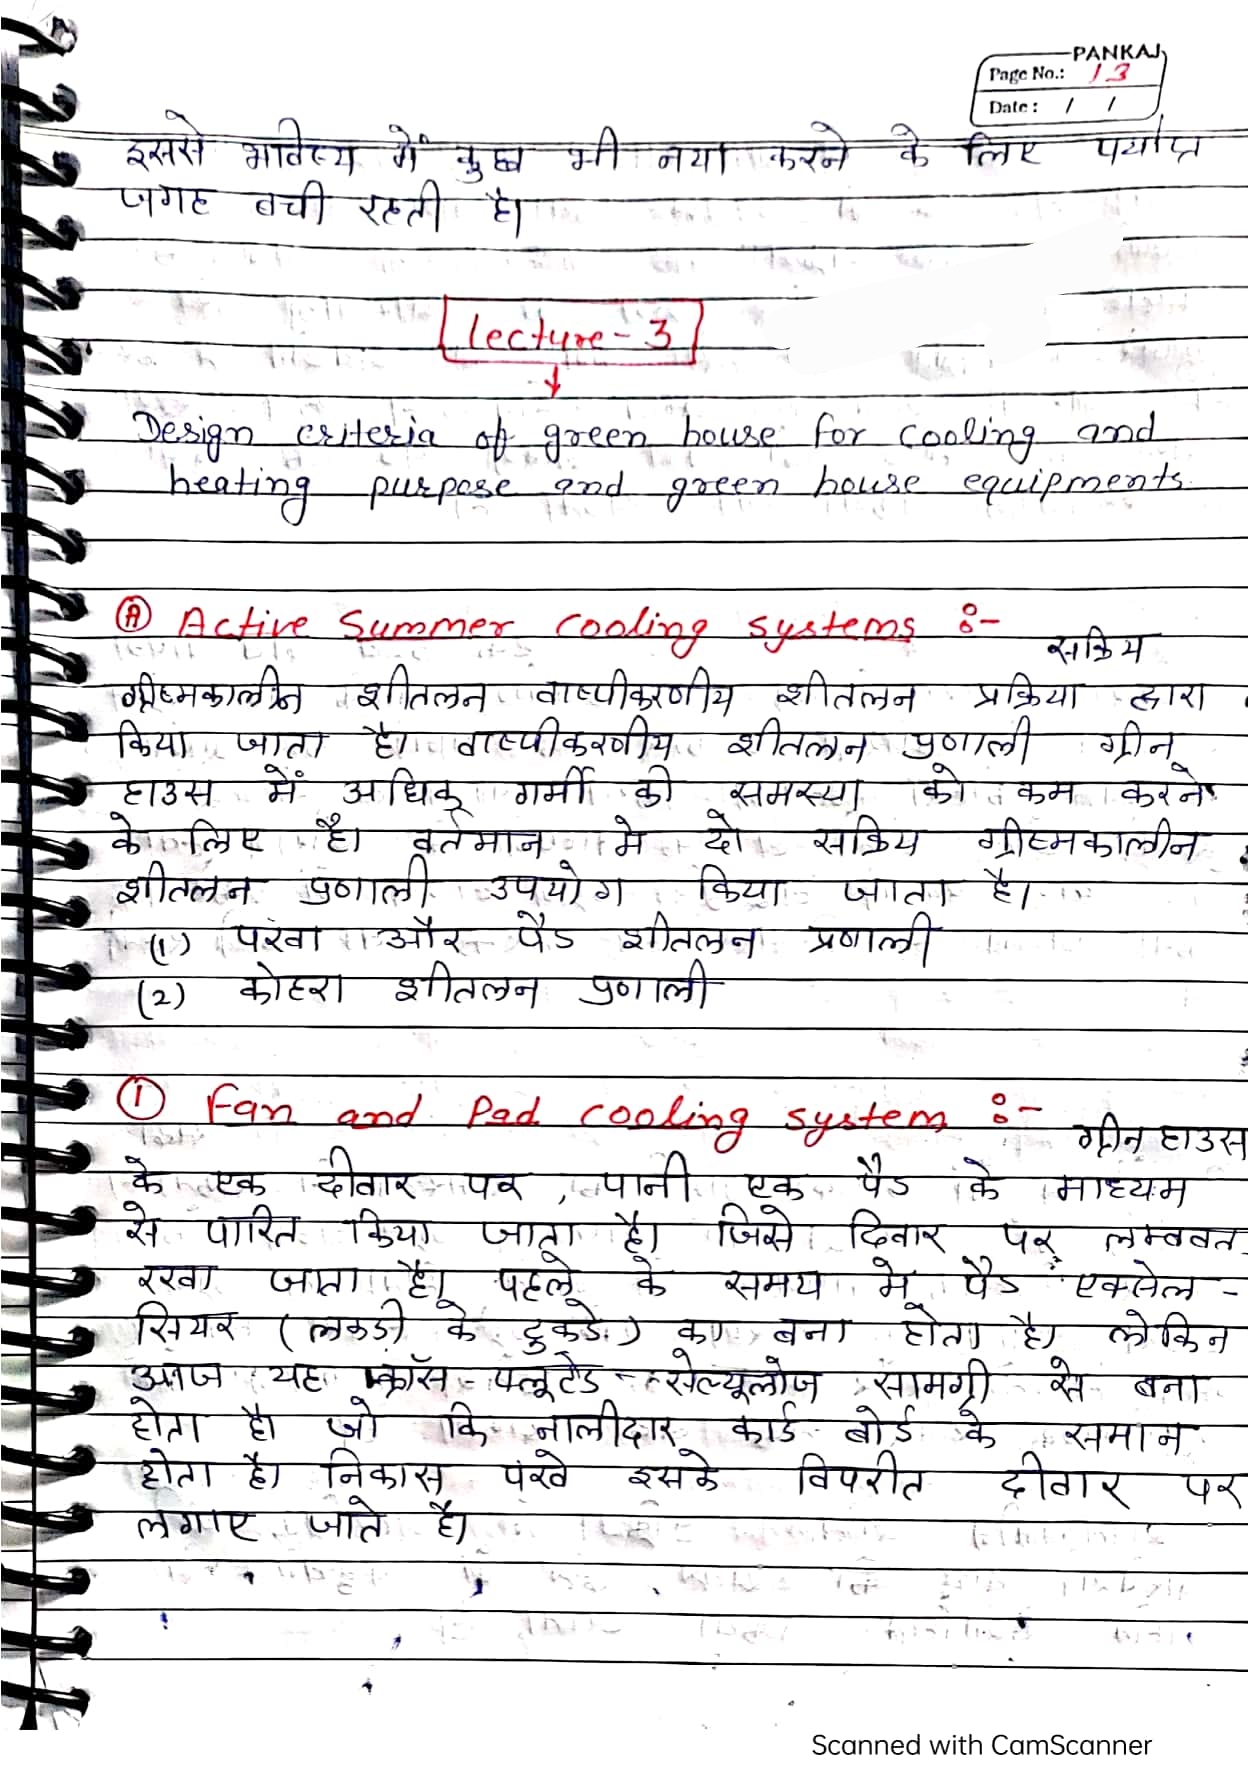 PANKAJ
Page No.: 13
Date : / /
इससे भविष्य में कुछ भी नया करने के लिए पर्याप्त
जगह बची रहती है।
Lecture - 3
Design criteria of green house for cooling and
heating purpose and green house equipments
Ⓐ Active Summer cooling systems :- सक्रिय
ग्रीष्मकालीन शीतलन वाष्पीकरणीय शीतलन प्रक्रिया द्वारा
किया जाता है। वाष्पीकरणीय शीतलन प्रणाली ग्रीन
हाउस में अधिक गर्मी की समस्या को कम करने
के लिए है। वर्तमान मे दो सक्रिय ग्रीष्मकालीन
शीतलन प्रणाली उपयोग किया जाता है।
(1) पंखा और पैड शीतलन प्रणाली
(2) कोहरा शीतलन प्रणाली
① Fan and Pad cooling system :- ग्रीन हाउस
के एक दीवार पर, पानी एक पैड के माध्यम
से पारित किया जाता है। जिसे दिवार पर लम्बवत
रखा जाता है। पहले के समय मे पैड एक्सेल -
सियर (लकड़ी के टुकडे) का बना होता है। लेकिन
आज यह क्रॉस - फ्लूटेड - सेल्यूलोज सामग्री से बना
होता है। जो कि नालीदार कार्ड बोर्ड के समान
होता है। निकास पंखे इसके विपरीत दीवार पर
लगाए जाते है।
Scanned with CamScanner